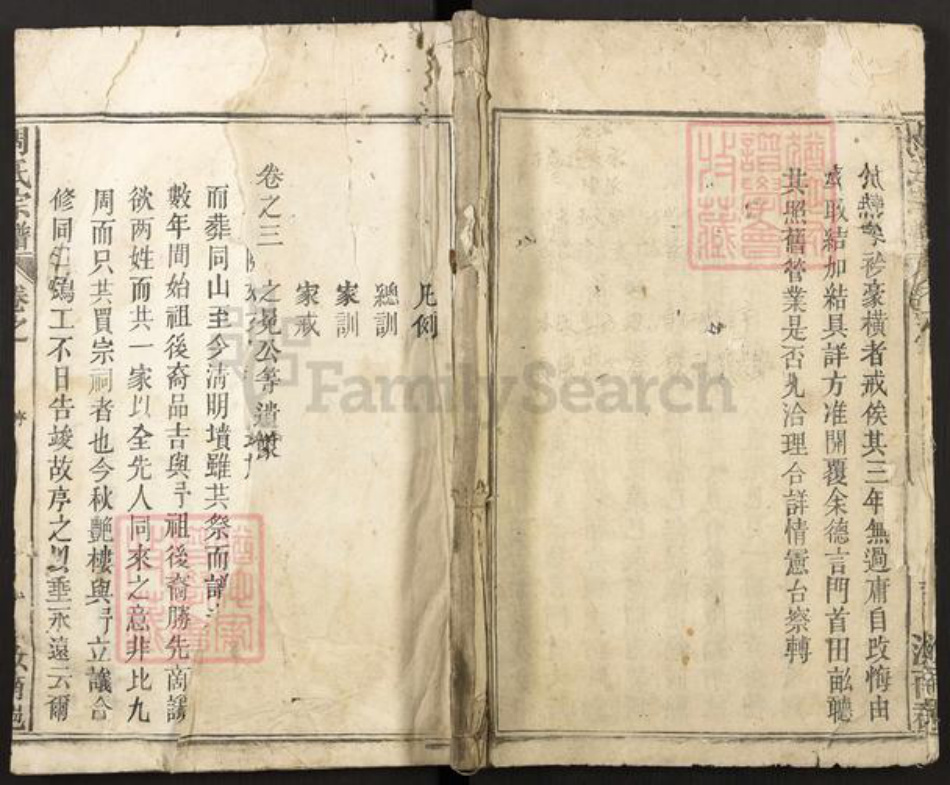 豪橫者戒俟其三年無過庸自改悔由
取結加結具詳方准開覆余德言門首田畝聽
其照舊管業是否允洽理合詳情憲台察轉
凡例
總訓
家訓
家戒
卷之三
之冕公等遺像
而葬同山至今清明墳雖共祭而譜
數年間始祖後裔品吉與予祖後裔勝先商議
欲两姓而共一家以全先人同來之意非比九
周而只共買宗祠者也今秋艷樓與予立議合
修同工鳩工不日告竣故序之以垂永遠云爾
周氏宗譜
卷之一
序
汝南
FamilySearch